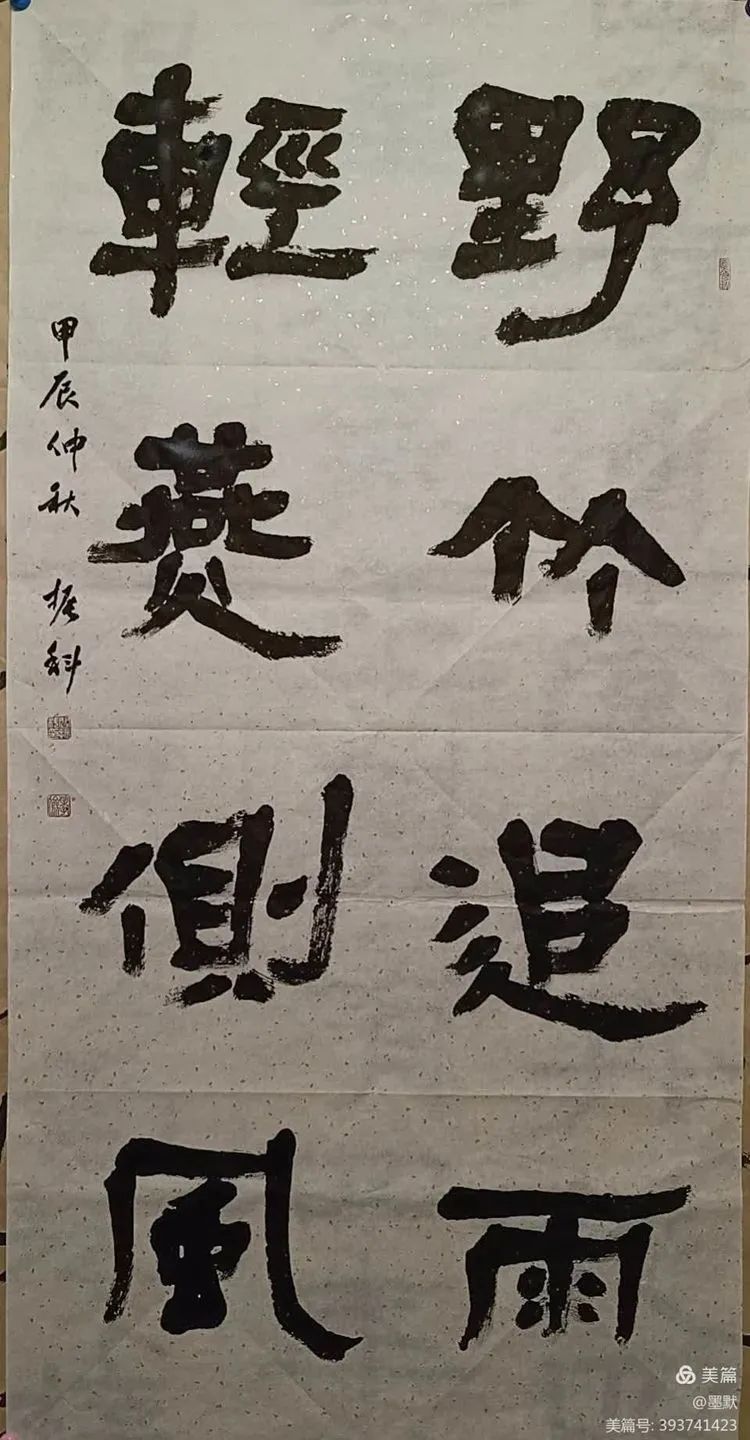 野竹追雨
輕燕側風
甲辰仲秋 振科
美篇
@墨默
美篇号: 393741423